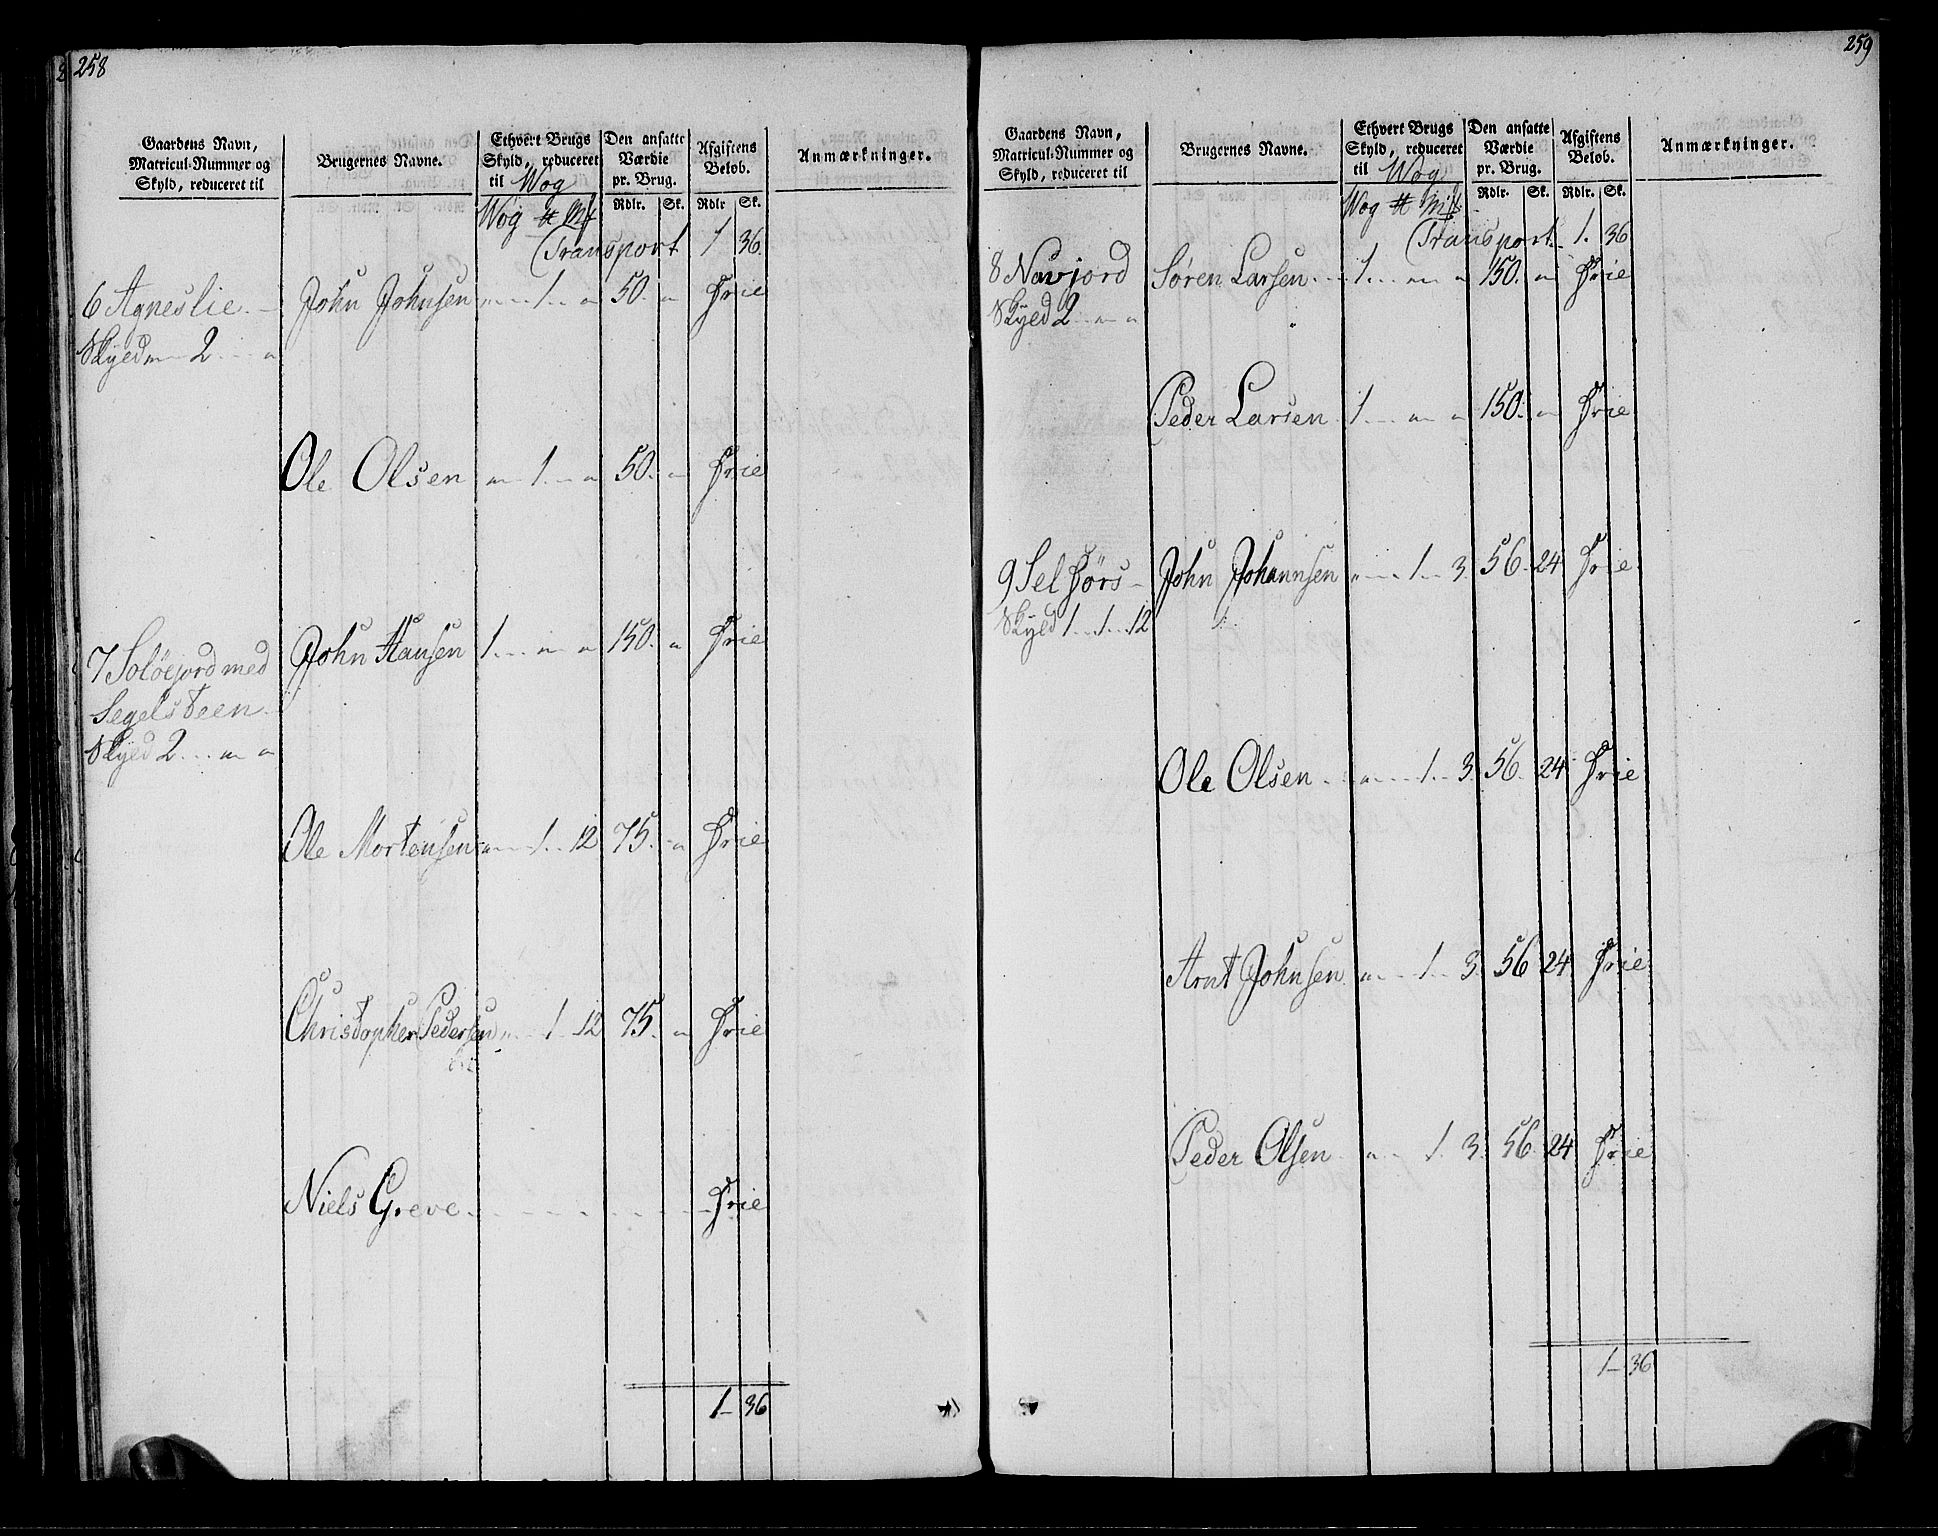 258
Gaardens Navn, Matricul-Nummer og Skyld, reduceret til
Brugernes Navne.
Ethvert Brugs Skyld, reduceret til Wog
Den ansatte Værdie pr. Brug.
Afgiftens Beløb.
Anmærkninger.
Rdlr. Sk. Rdlr Sk.
Wog
Transport 1 36.
6 Agneslie. John Johnsen " 1 " 50. " Frie
Skyld " 2 "
Ole Olsen " 1 " 50. " Frie
7 Soløejord med John Hansen 1 " " 150. " Frie
Segelsteen.
Skyld 2 " "
Ole Mortensen " 1 12 75. " Frie
Christopher Pedersen " 1 12 75. " Frie
Niels Greve Frie
1 – 36
259
Gaardens Navn, Matricul-Nummer og Skyld, reduceret til
Brugernes Navne.
Ethvert Brugs Skyld, reduceret til Wog
Den ansatte Værdie pr. Brug.
Afgiftens Beløb.
Anmærkninger.
Rdlr. Sk. Rdlr. Sk.
Wog
Transport 1. 36
8 Navjord Søren Larsen 1 " " 150. " Frie
Skyld 2 " "
Peder Larsen 1 " " 150. " Frie
9 Selførs John Johannsen " 1 3 56 24 Frie
Skyld 1 1 12
Ole Olsen " 1 3 56 24 Frie
Arnt Johnsen " 1 3. 56 24 Frie
Peder Olsen " 1 3. 56 24 Frie
1 – 36